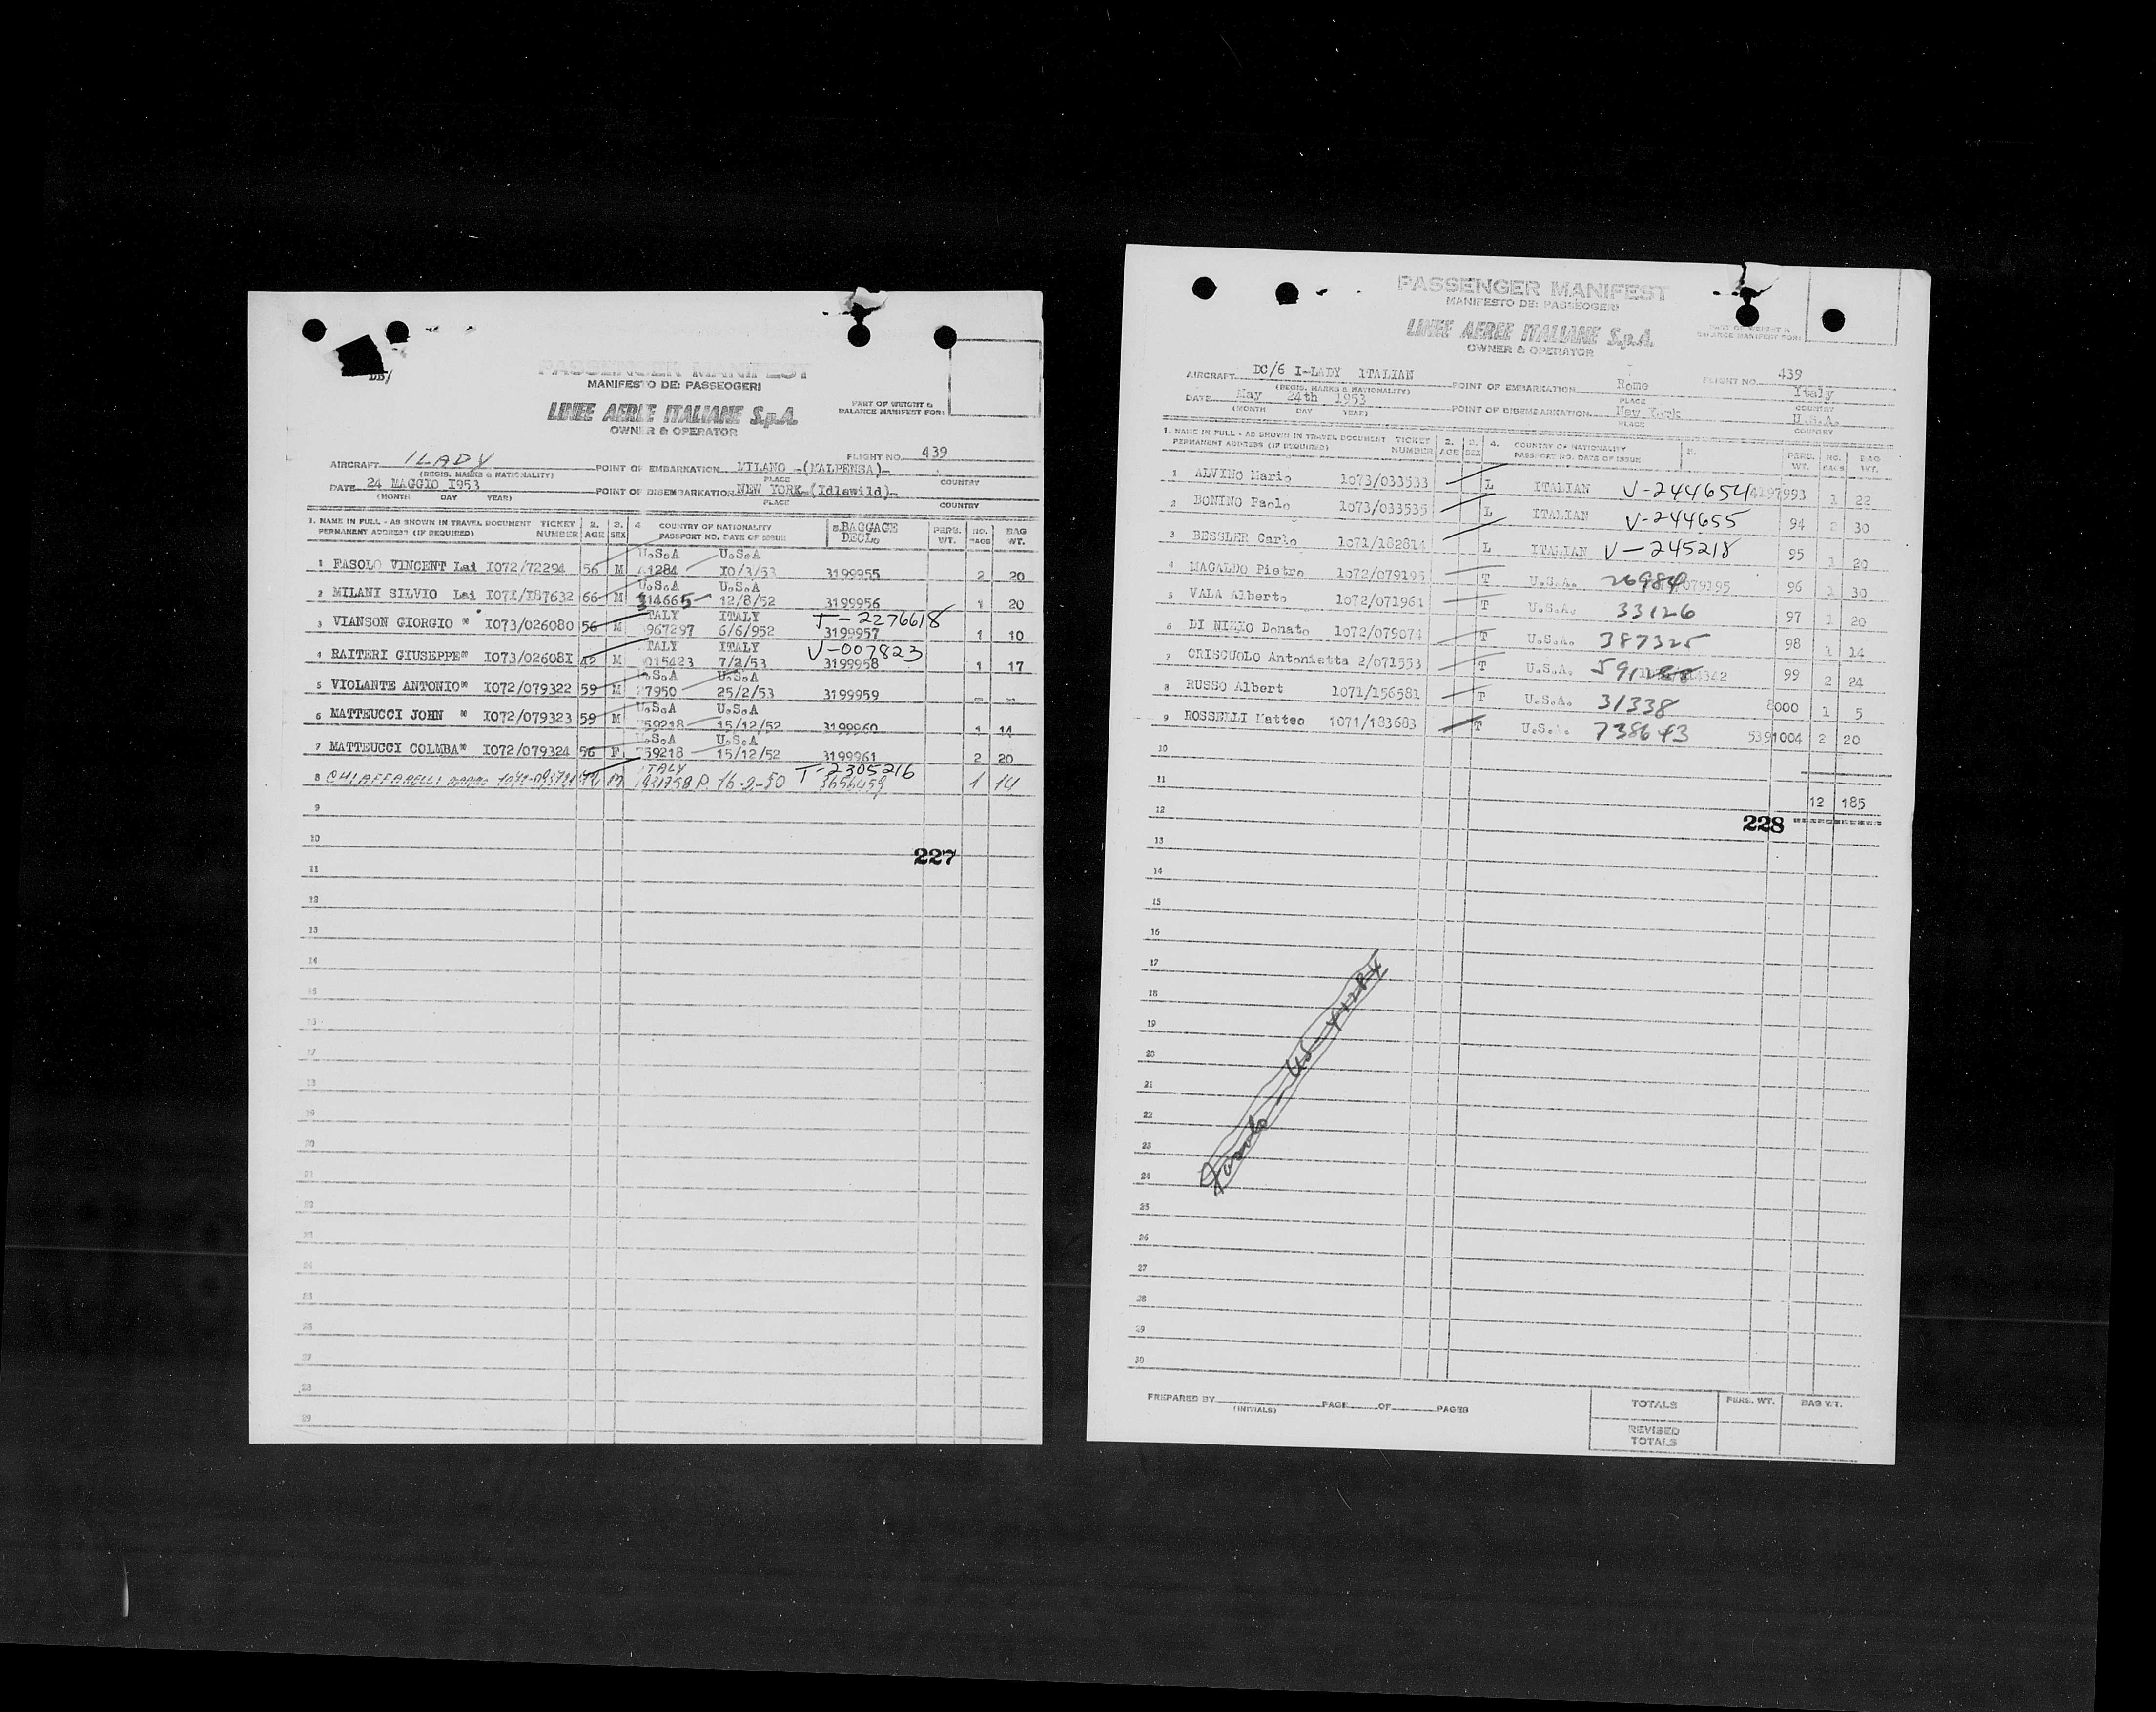 DB/
PASSENGER MANIFEST
MANIFESTO DEI PASSEGGERI
LINEE AEREE ITALIANE S.p.A.
OWNER & OPERATOR
PART OF WEIGHT &
BALANCE MANIFEST FOR:
FLIGHT NO. 439
AIRCRAFT ILADY POINT OF EMBARKATION MILANO (MALPENSA)
(REGIS. MARKS & NATIONALITY) PLACE COUNTRY
DATE 24 MAGGIO I953 POINT OF DISEMBARKATION NEW YORK (Idlewild)
(MONTH DAY YEAR) PLACE COUNTRY
1. NAME IN FULL - AS SHOWN IN TRAVEL DOCUMENT TICKET 2. 3. 4 COUNTRY OF NATIONALITY 5. BAGGAGE PERS. NO. BAG
PERMANENT ADDRESS (IF REQUIRED) NUMBER AGE SEX PASSPORT NO. DATE OF ISSUE DECL. WT. BAGS WT.
U.S.A U.S.A
1 FASOLO VINCENT Lai I072/72294 56 M 41284 I0/3/53 3199955 2 20
U.S.A U.S.A
2 MILANI SILVIO Lai I07I/I87632 66 M 314665 12/8/52 3199956 1 20
ITALY ITALY T-2276618
3 VIANSON GIORGIO " I073/026080 56 M 967297 6/6/952 3199957 1 10
ITALY ITALY V-007823
4 RAITERI GIUSEPPE" I073/02608I 42 M 015423 7/2/53 3199958 1 17
U.S.A U.S.A
5 VIOLANTE ANTONIO" I072/079322 59 M 27950 25/2/53 3199959
U.S.A U.S.A
6 MATTEUCCI JOHN " I072/079323 59 M 759218 15/12/52 3199960 1 14
U.S.A U.S.A
7 MATTEUCCI COLMBA" I072/079324 56 F 759218 15/12/52 3199961 2 20
ITALY T-2305216
8 CHIAFFARELLI M P. 16-2-50 3656459 1 14
9
10
227
11
12
13
14
15
16
17
18
19
20
21
22
23
24
25
26
27
28
29
PASSENGER MANIFEST
MANIFESTO DEI PASSEGGERI
LINEE AEREE ITALIANE S.p.A.
OWNER & OPERATOR
PART OF WEIGHT &
BALANCE MANIFEST FOR:
AIRCRAFT DC/6 I-LADY ITALIAN POINT OF EMBARKATION Rome FLIGHT NO. 439
(REGIS. MARKS & NATIONALITY) PLACE Italy
DATE May 24th 1953 POINT OF DISEMBARKATION New York COUNTRY
(MONTH DAY YEAR) PLACE U.S.A.
COUNTRY
1. NAME IN FULL - AS SHOWN IN TRAVEL DOCUMENT TICKET 2. 3. 4. COUNTRY OF NATIONALITY 5. PERS. NO. BAG
PERMANENT ADDRESS (IF REQUIRED) NUMBER AGE SEX PASSPORT NO. DATE OF ISSUE WT. BAGS WT.
1 ALVINO Mario 1073/033533 L ITALIAN V-244654 4197993 1 22
2 BONINO Paolo 1073/033535 L ITALIAN V-244655 94 2 30
3 BESSLER Carlo 1071/182814 L ITALIAN V-245218 95 1 20
4 MAGALDO Pietro 1072/079195 T U.S.A. 26984 079195 96 1 30
5 VALA Alberto 1072/071961 T U.S.A. 33126 97 1 20
6 DI NIZIO Donato 1072/079074 T U.S.A. 387325 98 1 14
7 CRISCUOLO Antonietta 2/071553 T U.S.A. 99 2 24
8 RUSSO Albert 1071/156581 T U.S.A. 31338 8000 1 5
9 ROSSELLI Matteo 1071/183683 T U.S.A. 738643 5391004 2 20
10
11
12 185
12
228
13
14
15
16
17
18
19
20
21
22
23
24
Fasolo - US-41284
25
26
27
28
29
30
PREPARED BY PAGE OF PAGES
(INITIALS)
TOTALS PERS. WT. BAG WT.
REVISED
TOTALS